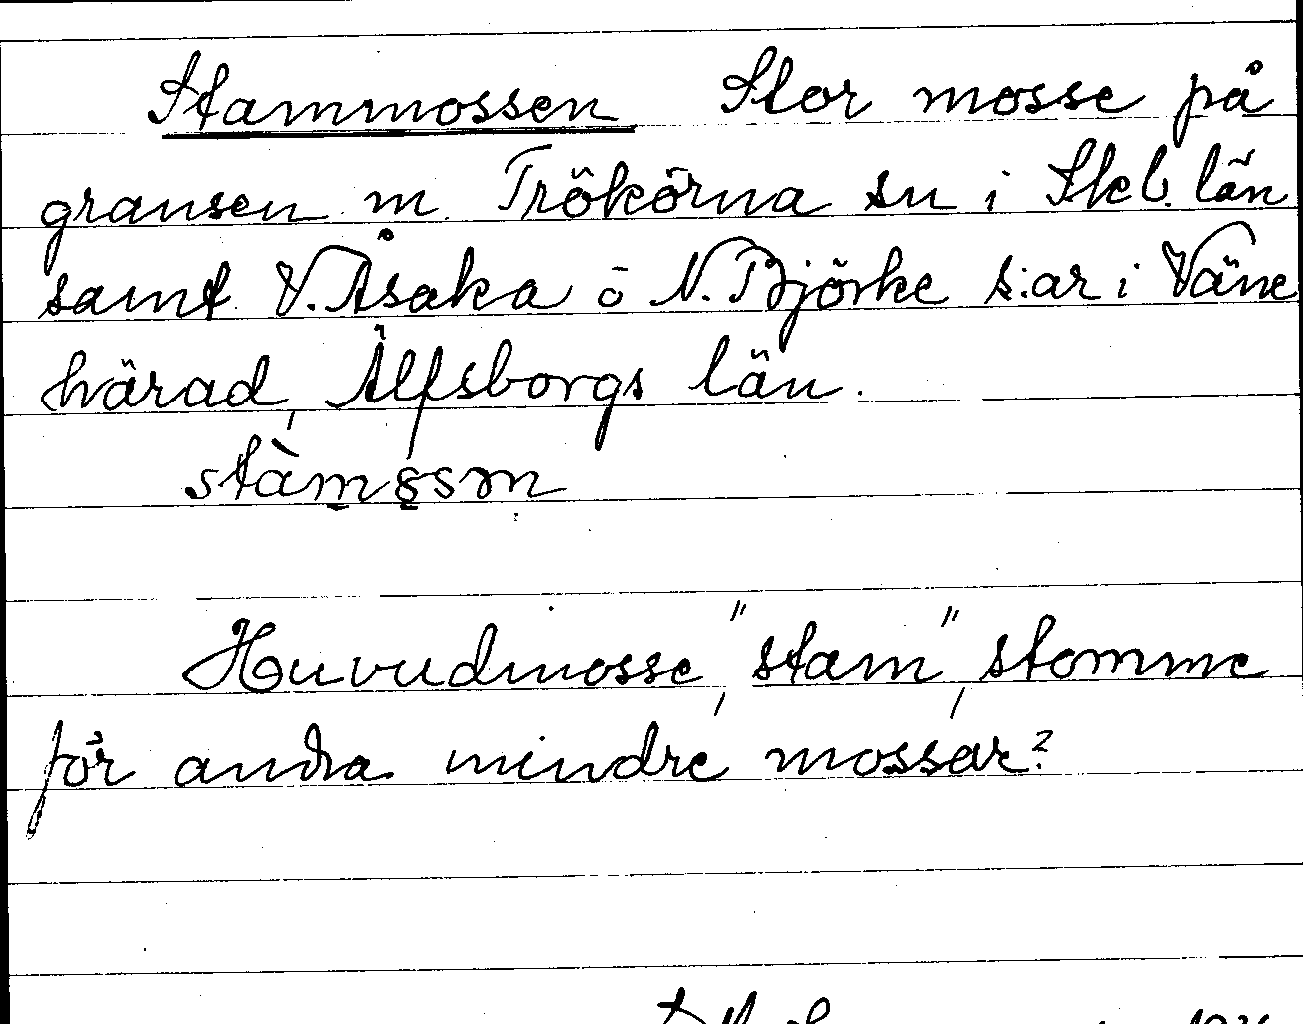 Stammossen Stor mosse på
gränsen m. Trökörna sn i Skb. län
samt V. Åsaka o N. Björke s:ar i Väne
härad, Älfsborgs län.
stàmssm
Huvudmosse, "stam", stomme
för andra mindre mossar?